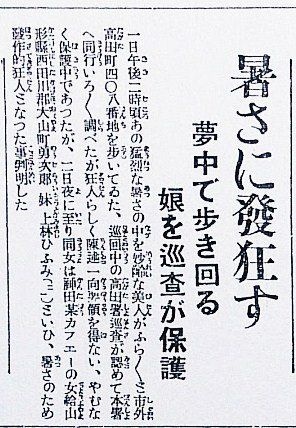 暑さに發狂す
夢中で歩き回る
娘を巡査が保護
一日午後二時頃あの猛烈な暑さの中を妙齢な美人がふら〱と市外
高田町四〇八番地を歩いてゐた、巡回中の高田署巡査が認めて本署
へ同行いろ〱調べたが狂人らしく陳述一向要領を得ない、やむな
く保護中であつたが、二日夜に至り同女は神田某カフエーの女給山
形縣西田川郡大山町勇次郎妹上林ひふみ(二〇)といひ、暑さのため
發作的狂人となつた事判明した